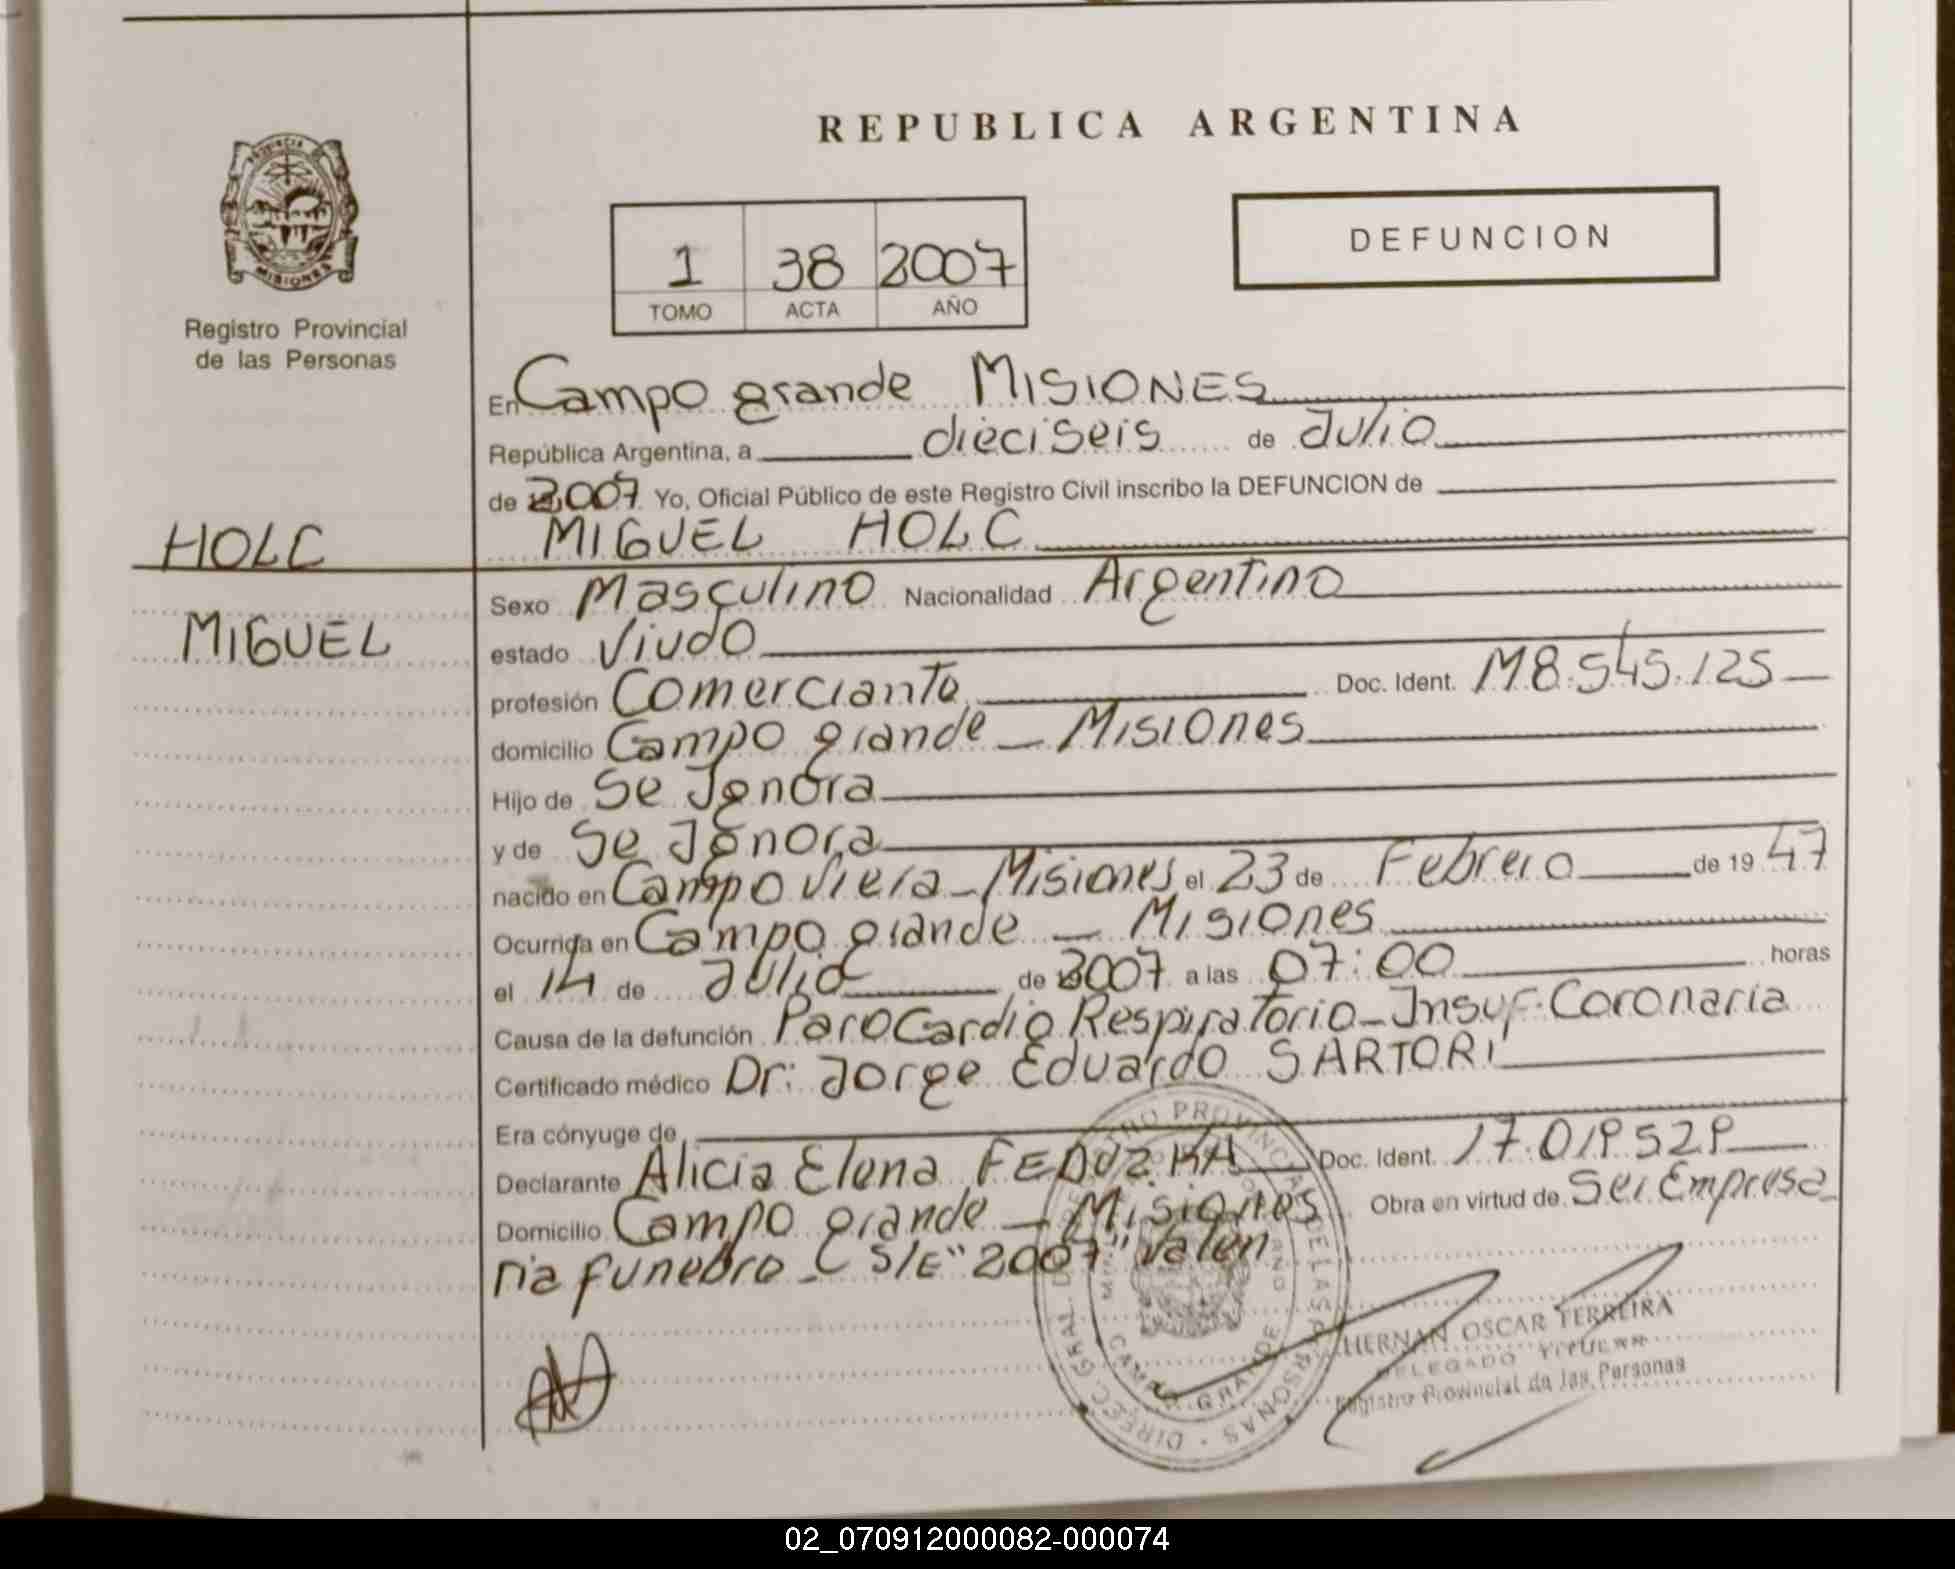 REPUBLICA ARGENTINA
PROVINCIA DE
MISIONES
Registro Provincial
de las Personas
1 38 2007
TOMO ACTA AÑO
DEFUNCION
En Campo grande MISIONES
República Argentina, a dieciseis de Julio
de 2007 Yo, Oficial Público de este Registro Civil inscribo la DEFUNCION de
HOLC
MIGUEL HOLC
MIGUEL
Sexo Masculino Nacionalidad Argentino
estado Viudo
profesión Comerciante Doc. Ident. M8.545.125
domicilio Campo grande - Misiones
Hijo de Se Ignora
y de Se Ignora
nacido en Campo Viera - Misiones el 23 de Febrero de 1947
Ocurrida en Campo grande - Misiones
el 14 de Julio de 2007 a las 07:00 horas
Causa de la defunción Paro Cardio Respiratorio - Insuf. Coronaria
Certificado médico Dr: Jorge Eduardo SARTORI
Era cónyuge de
Declarante Alicia Elena Doc. Ident. 17.019.529
Domicilio Campo grande - Misiones Obra en virtud de Ser Empresa
ria funebre - S/E "2007" Valen
DIREC. GRAL. DE REGISTRO PROVINCIAL DE LAS PERSONAS
CAMPO GRANDE
HERNAN OSCAR FERREIRA
DELEGADO TITULAR
Registro Provincial de las Personas
02_070912000082-000074